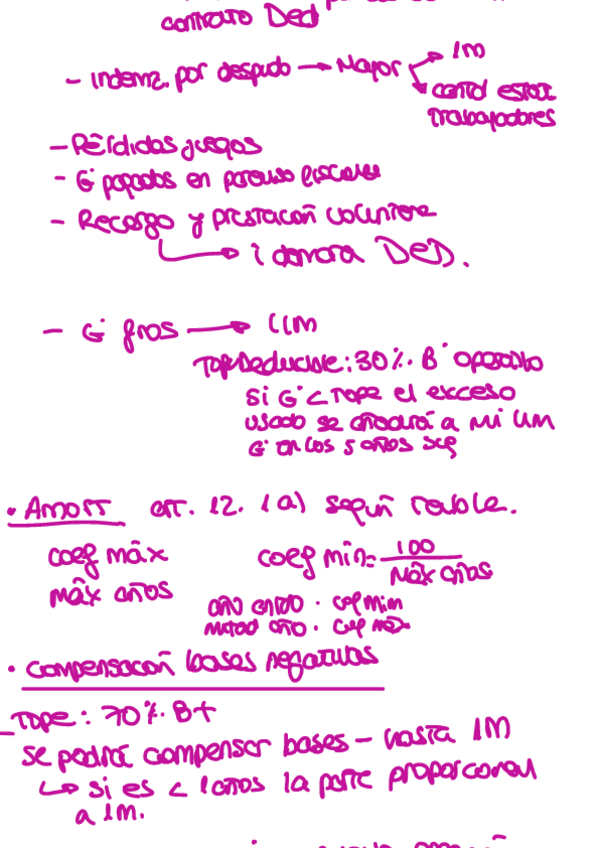 contrato Ded
- Indemz. por despido → Mayor → 1m
→ cantd estat
trabajadores
- Pérdidas juegos
- G pagados en paraíso fiscales
- Recargo y prestación voluntaria
→ i donara DED.
- G fnos → 1m
Tope Deducible: 30%. B operativo
Si G < Tope el exceso
usado se añadirá a mi lim
G en los 5 años seg
• Amort art. 12. 1 a) según tabla.
coef máx coef min = 100
máx años Máx años
año entro · coef min
mitad año · coef máx
• compensación bases negativas
Tope: 70%. B+
se podrá compensar bases - hasta 1M
↳ si es < 1 años la parte proporcional
a 1m.